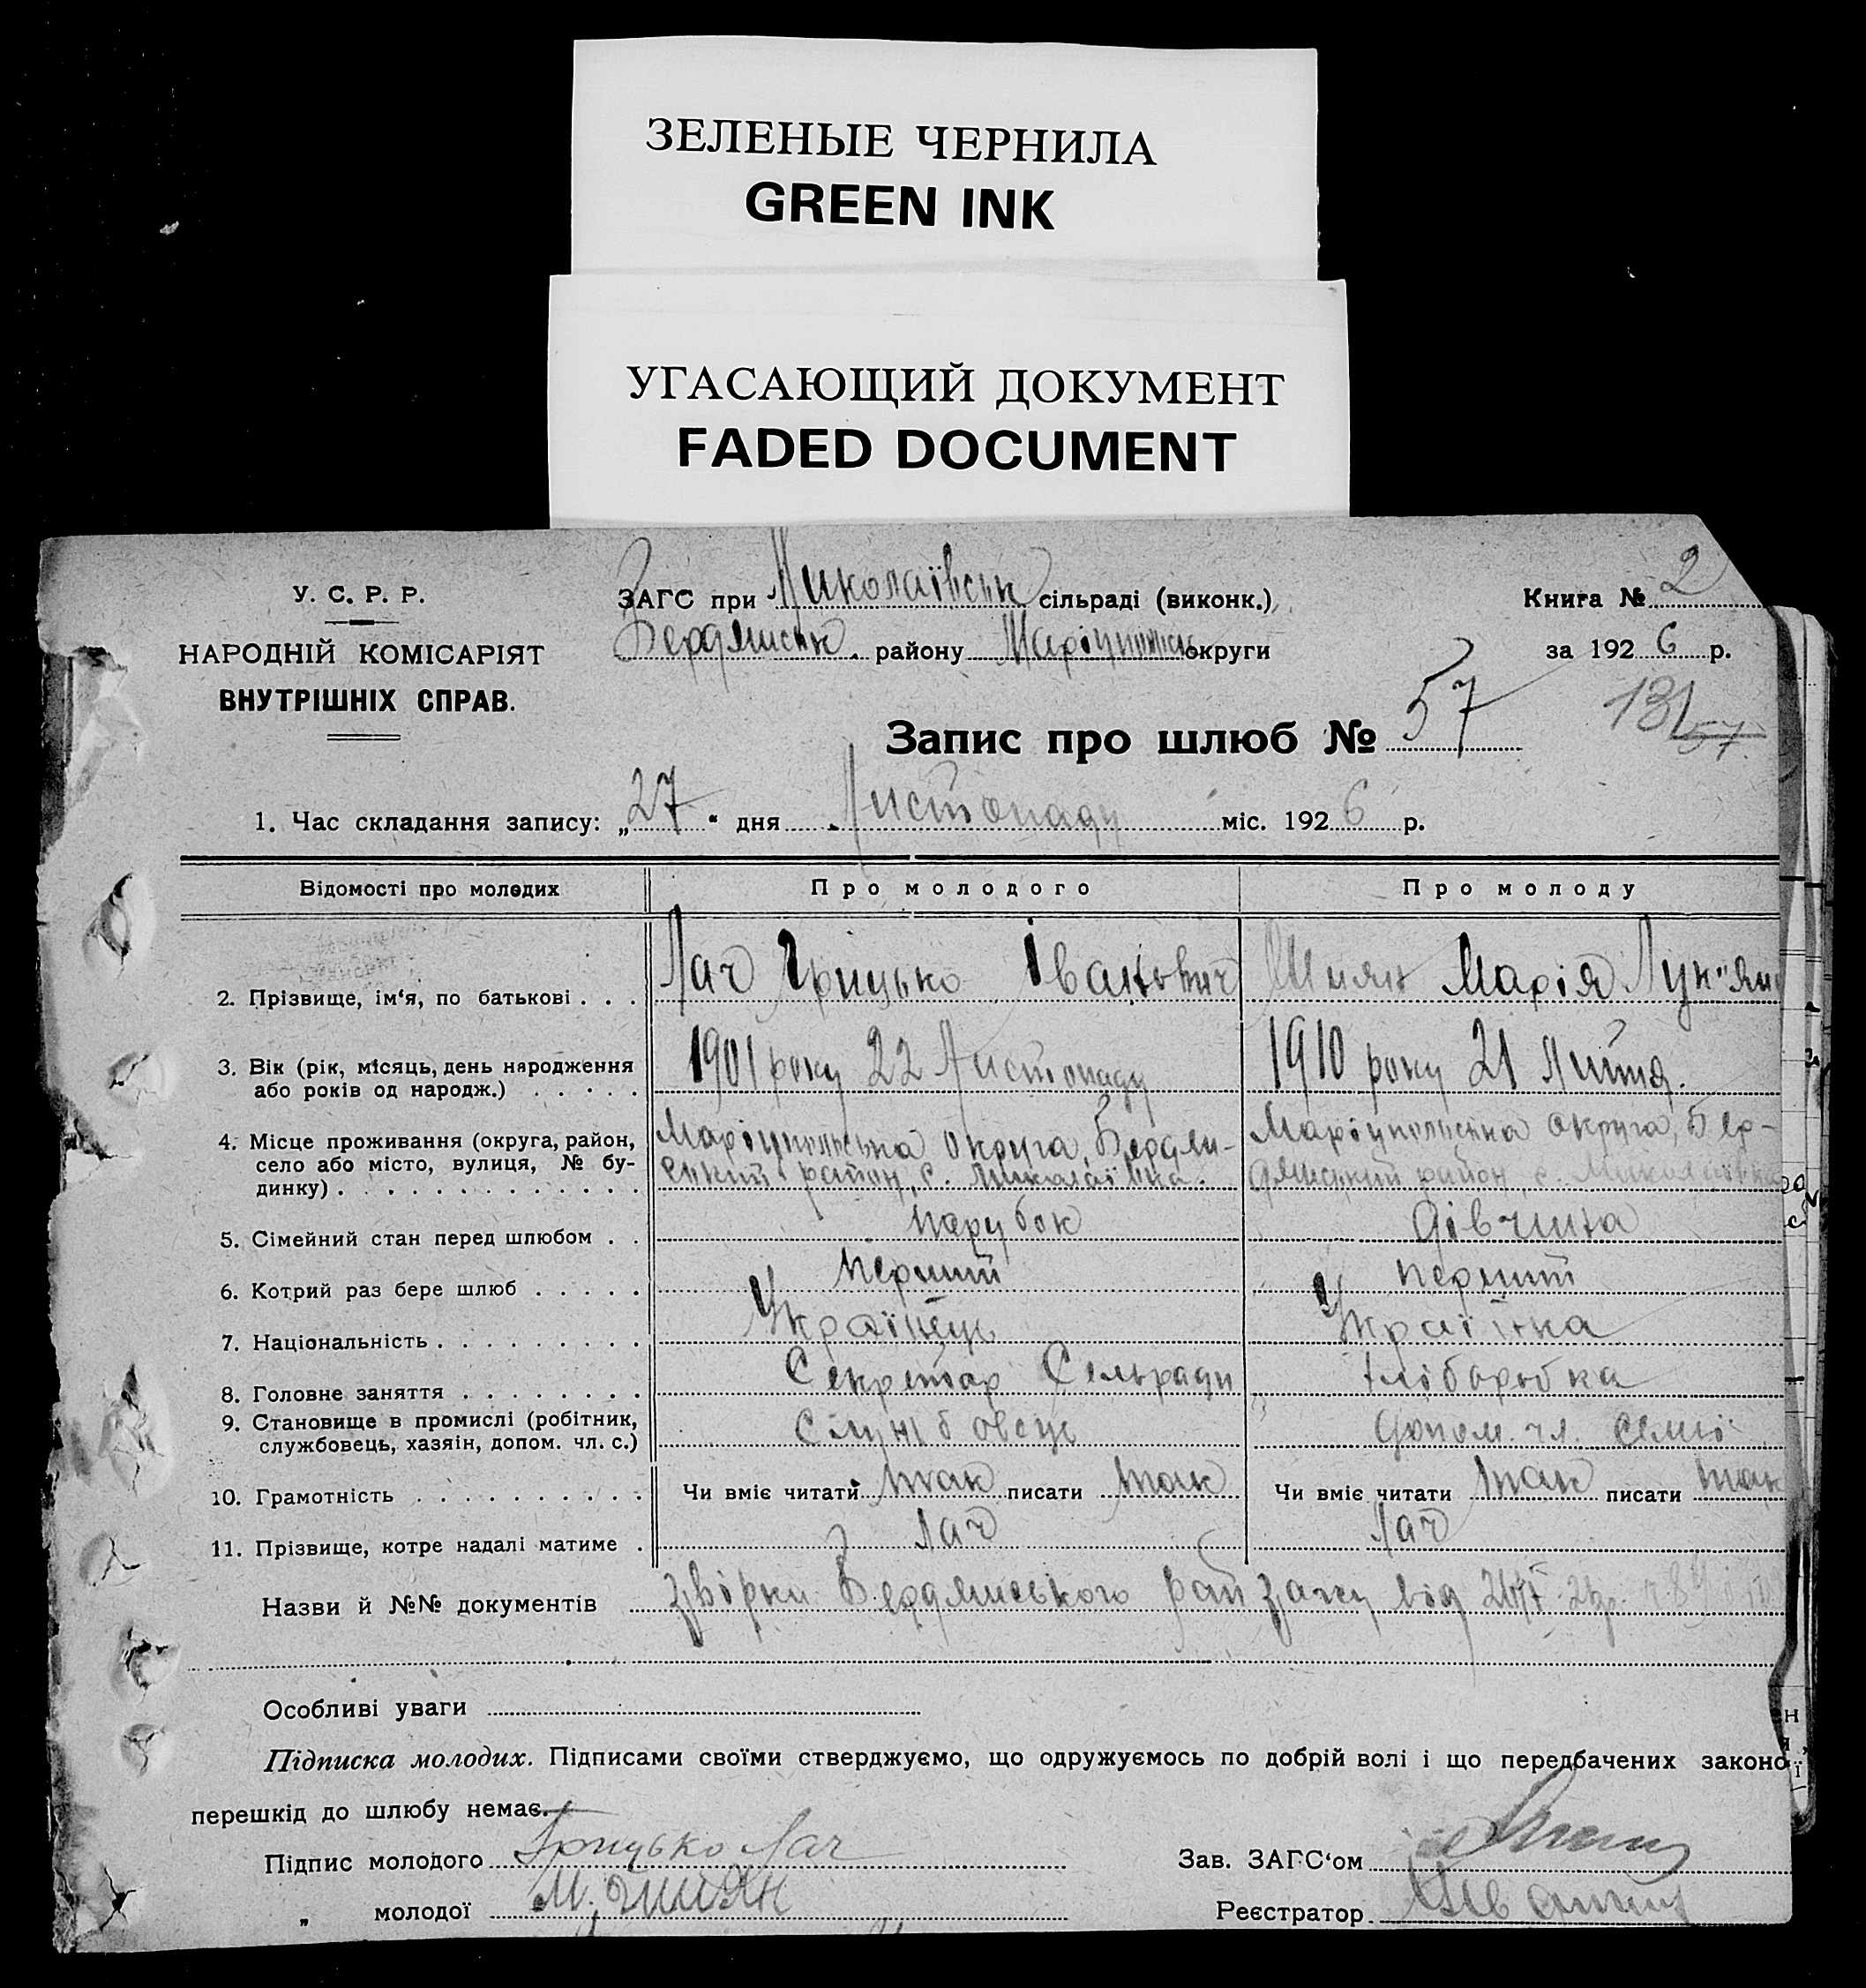 ЗЕЛЕНЫЕ ЧЕРНИЛА
GREEN INK
УГАСАЮЩИЙ ДОКУМЕНТ
FADED DOCUMENT
У. С. Р. Р.
НАРОДНІЙ КОМІСАРІЯТ
ВНУТРІШНІХ СПРАВ.
ЗАГС при Миколаївськ сільраді (виконк.)
Бердянськ. району Маріупольськ округи
Книга № 2
за 1926 р.
Запис про шлюб № 57
131
57.
1. Час складання запису: „27“ дня Листопаду міс. 1926 р.
Відомості про молодих Про молодого Про молоду
2. Прізвище, ім‘я, по батькові . . . Лач Грицько Іванович Марія Лук"ян
3. Вік (рік, місяць, день народження
або років од народж.) . . . . . 1901 року 22 Листопаду 1910 року 21 Липня.
4. Місце проживання (округа, район, Маріупольська округа, Бердян- Маріупольська округа, Бер-
село або місто, вулиця, № бу- ський район, с. Миколаївка. дянський район, с. Миколаївка
динку) . . . . . . . . . . . . .
5. Сімейний стан перед шлюбом . . парубок дівчина
6. Котрий раз бере шлюб . . . . . перший перший
7. Національність . . . . . . . . . Українець Українка
8. Головне заняття . . . . . . . . Секретар Сельради хліборобка
9. Становище в промислі (робітник,
службовець, хазяін, допом. чл. с.) Службовець допом. чл. семьї
10. Грамотність . . . . . . . . . . Чи вміє читати так писати так Чи вміє читати так писати так
11. Прізвище, котре надалі матиме . Лач Лач
Назви й №№ документів Бердянського рай загсу від
Особливі уваги
Підписка молодих. Підписами своїми стверджуємо, що одружуємось по добрій волі і що передбачених законо
перешкід до шлюбу немає.
Підпис молодого Грицько Лач Зав. ЗАГС‘ом
„ молодої М. Реєстратор